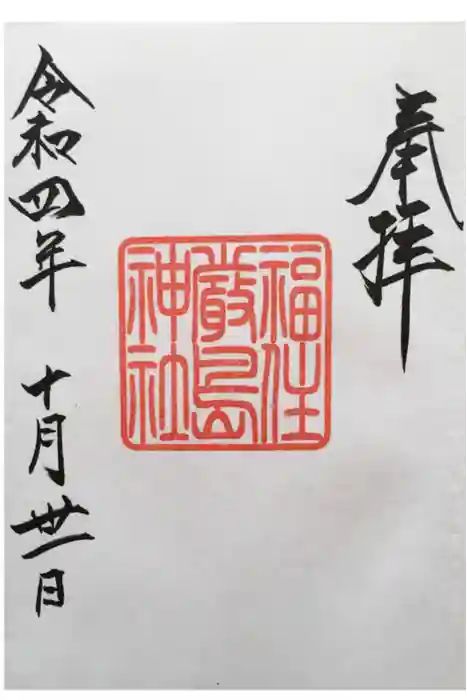 奉拝
福住
厳島
神社
令和四年 十月卅一日